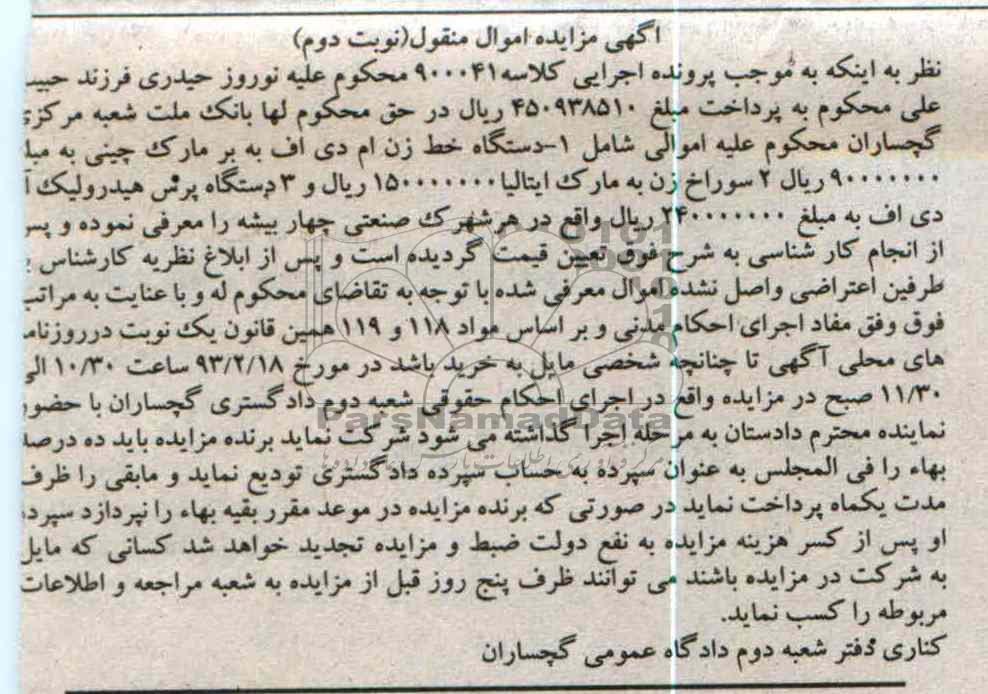 آگهی مزایده اموال منقول(نوبت دوم)
نظر به اینکه به موجب پرونده اجرایی کلاسه۹۰۰۰۴۱ محکوم علیه نوروز حیدری فرزند حبیب
علی محکوم به پرداخت مبلغ ۴۵۰۹۳۸۵۱۰ ریال در حق محکوم لها بانک ملت شعبه مرکزی
گچساران محکوم علیه اموالی شامل ۱-دستگاه خط زن ام دی اف به بر مارک چینی به
۹۰۰۰۰۰۰۰ ریال ۲ سوراخ زن به مارک ایتالیا۱۵۰۰۰۰۰۰۰ ریال و ۳ دستگاه پرس هیدرولیک
دی اف به مبلغ ۲۴۰۰۰۰۰۰۰ ریال واقع در هرشهرک صنعتی چهار بیشه را معرفی نموده و پس
از انجام کار شناسی به شرح فوق تعیین قیمت گردیده است و پس از ابلاغ نظریه کارشناس
طرفین اعتراضی واصل نشده اموال معرفی شده با توجه به تقاضای محکوم له و با عنایت به مراتب
فوق وفق مفاد اجرای احکام مدنی و بر اساس مواد ۱۱۸ و ۱۱۹ همین قانون یک نوبت درروزنامه
های محلی آگهی تا چنانچه شخصی مایل به خرید باشد در مورخ ۹۳/۲/۱۸ ساعت ۱۰/۳۰ الی
۱۱/۳۰ صبح در مزایده واقع در اجرای احکام حقوقی شعبه دوم دادگستری گچساران با حضور
نماینده محترم دادستان به مرحله اجرا گذاشته می شود شرکت نماید برنده مزایده باید ده درصد
بهاء را فی المجلس به عنوان سپرده به حساب سپرده دادگستری تودیع نماید و مابقی را ظرف
مدت یکماه پرداخت نماید در صورتی که برنده مزایده در موعد مقرر بقیه بهاء را نپردازد سپرده
او پس از کسر هزینه مزایده به نفع دولت ضبط و مزایده تجدید خواهد شد کسانی که مایل
به شرکت در مزایده باشند می توانند ظرف پنج روز قبل از مزایده به شعبه مراجعه و اطلاعات
مربوطه را کسب نماید.
کناری دفتر شعبه دوم دادگاه عمومی گچساران
ParsNamadData